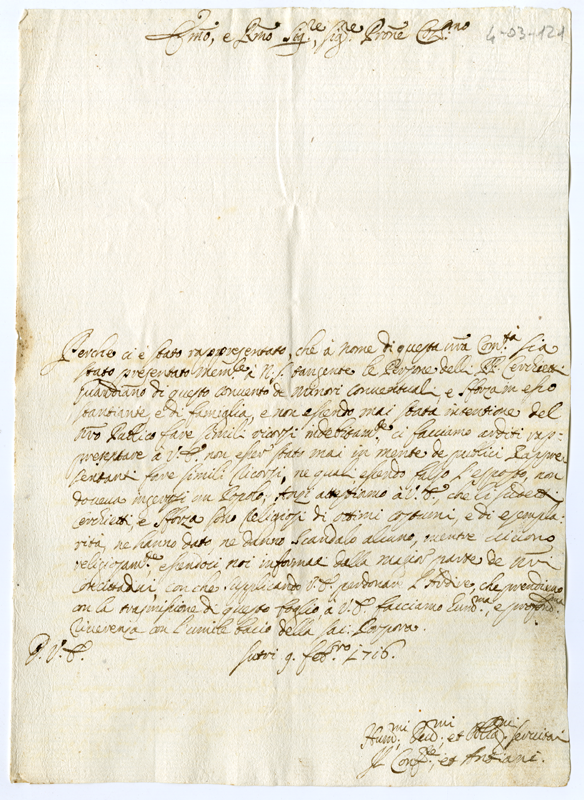 Em̃o, e R̃mo Sig.re, Sig.re Prõne Col.mo
4-03-121
Perche ci è stato rappresentato, che à nome di questa nr̃a Com.tà sia
stato presentato Mem.le à N. S. tangente le Persone delli PP.
Guardiano di questo convento de Minori conventuali e Sforza in esso
stantiante e di famiglia, e non essendo mai stata intentione del
nr̃o Publico fare simili ricorsi indebitam.te ci facciamo arditi rap-
presentare à V. E. non esser stato mai in mente de publici Rappre-
sentanti fare simili Ricorsi, ne quali essendo falso l'esposto, non
doueua inserirsi un Anzi attestiamo à V. E. che li sudetti
e Sforza sono Religiosi di ottimi costumi, e di esempla-
rità, ne hanno dato ne danno scandalo alcuno, mentre uiuono
religiosam.te essendoci noi informati dalla maggior parte de nr̃i
Concittadini, con che supplicando V. E. perdonare l'ardire, che prendiamo
con la trasmissione di questo foglio à V. E. facciamo hum.ma, e profond.ma
riuerenza con l'umile bacio della sac: Porpora.
D. V. E. Sutri 9. feb.ro 1716.
Hum.mi Deu.mi et Obblig.mi seruitori
Il Conf.re, et Antiani.